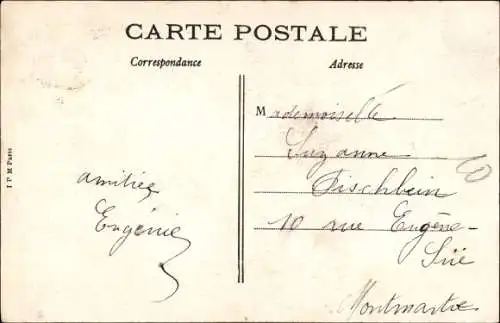 CARTE POSTALE
Correspondance
Adresse
I P M Paris
amitiés
Eugénie
Mademoiselle
Suzanne
Fischbein
10 rue Eugène-
Süe
Montmartre